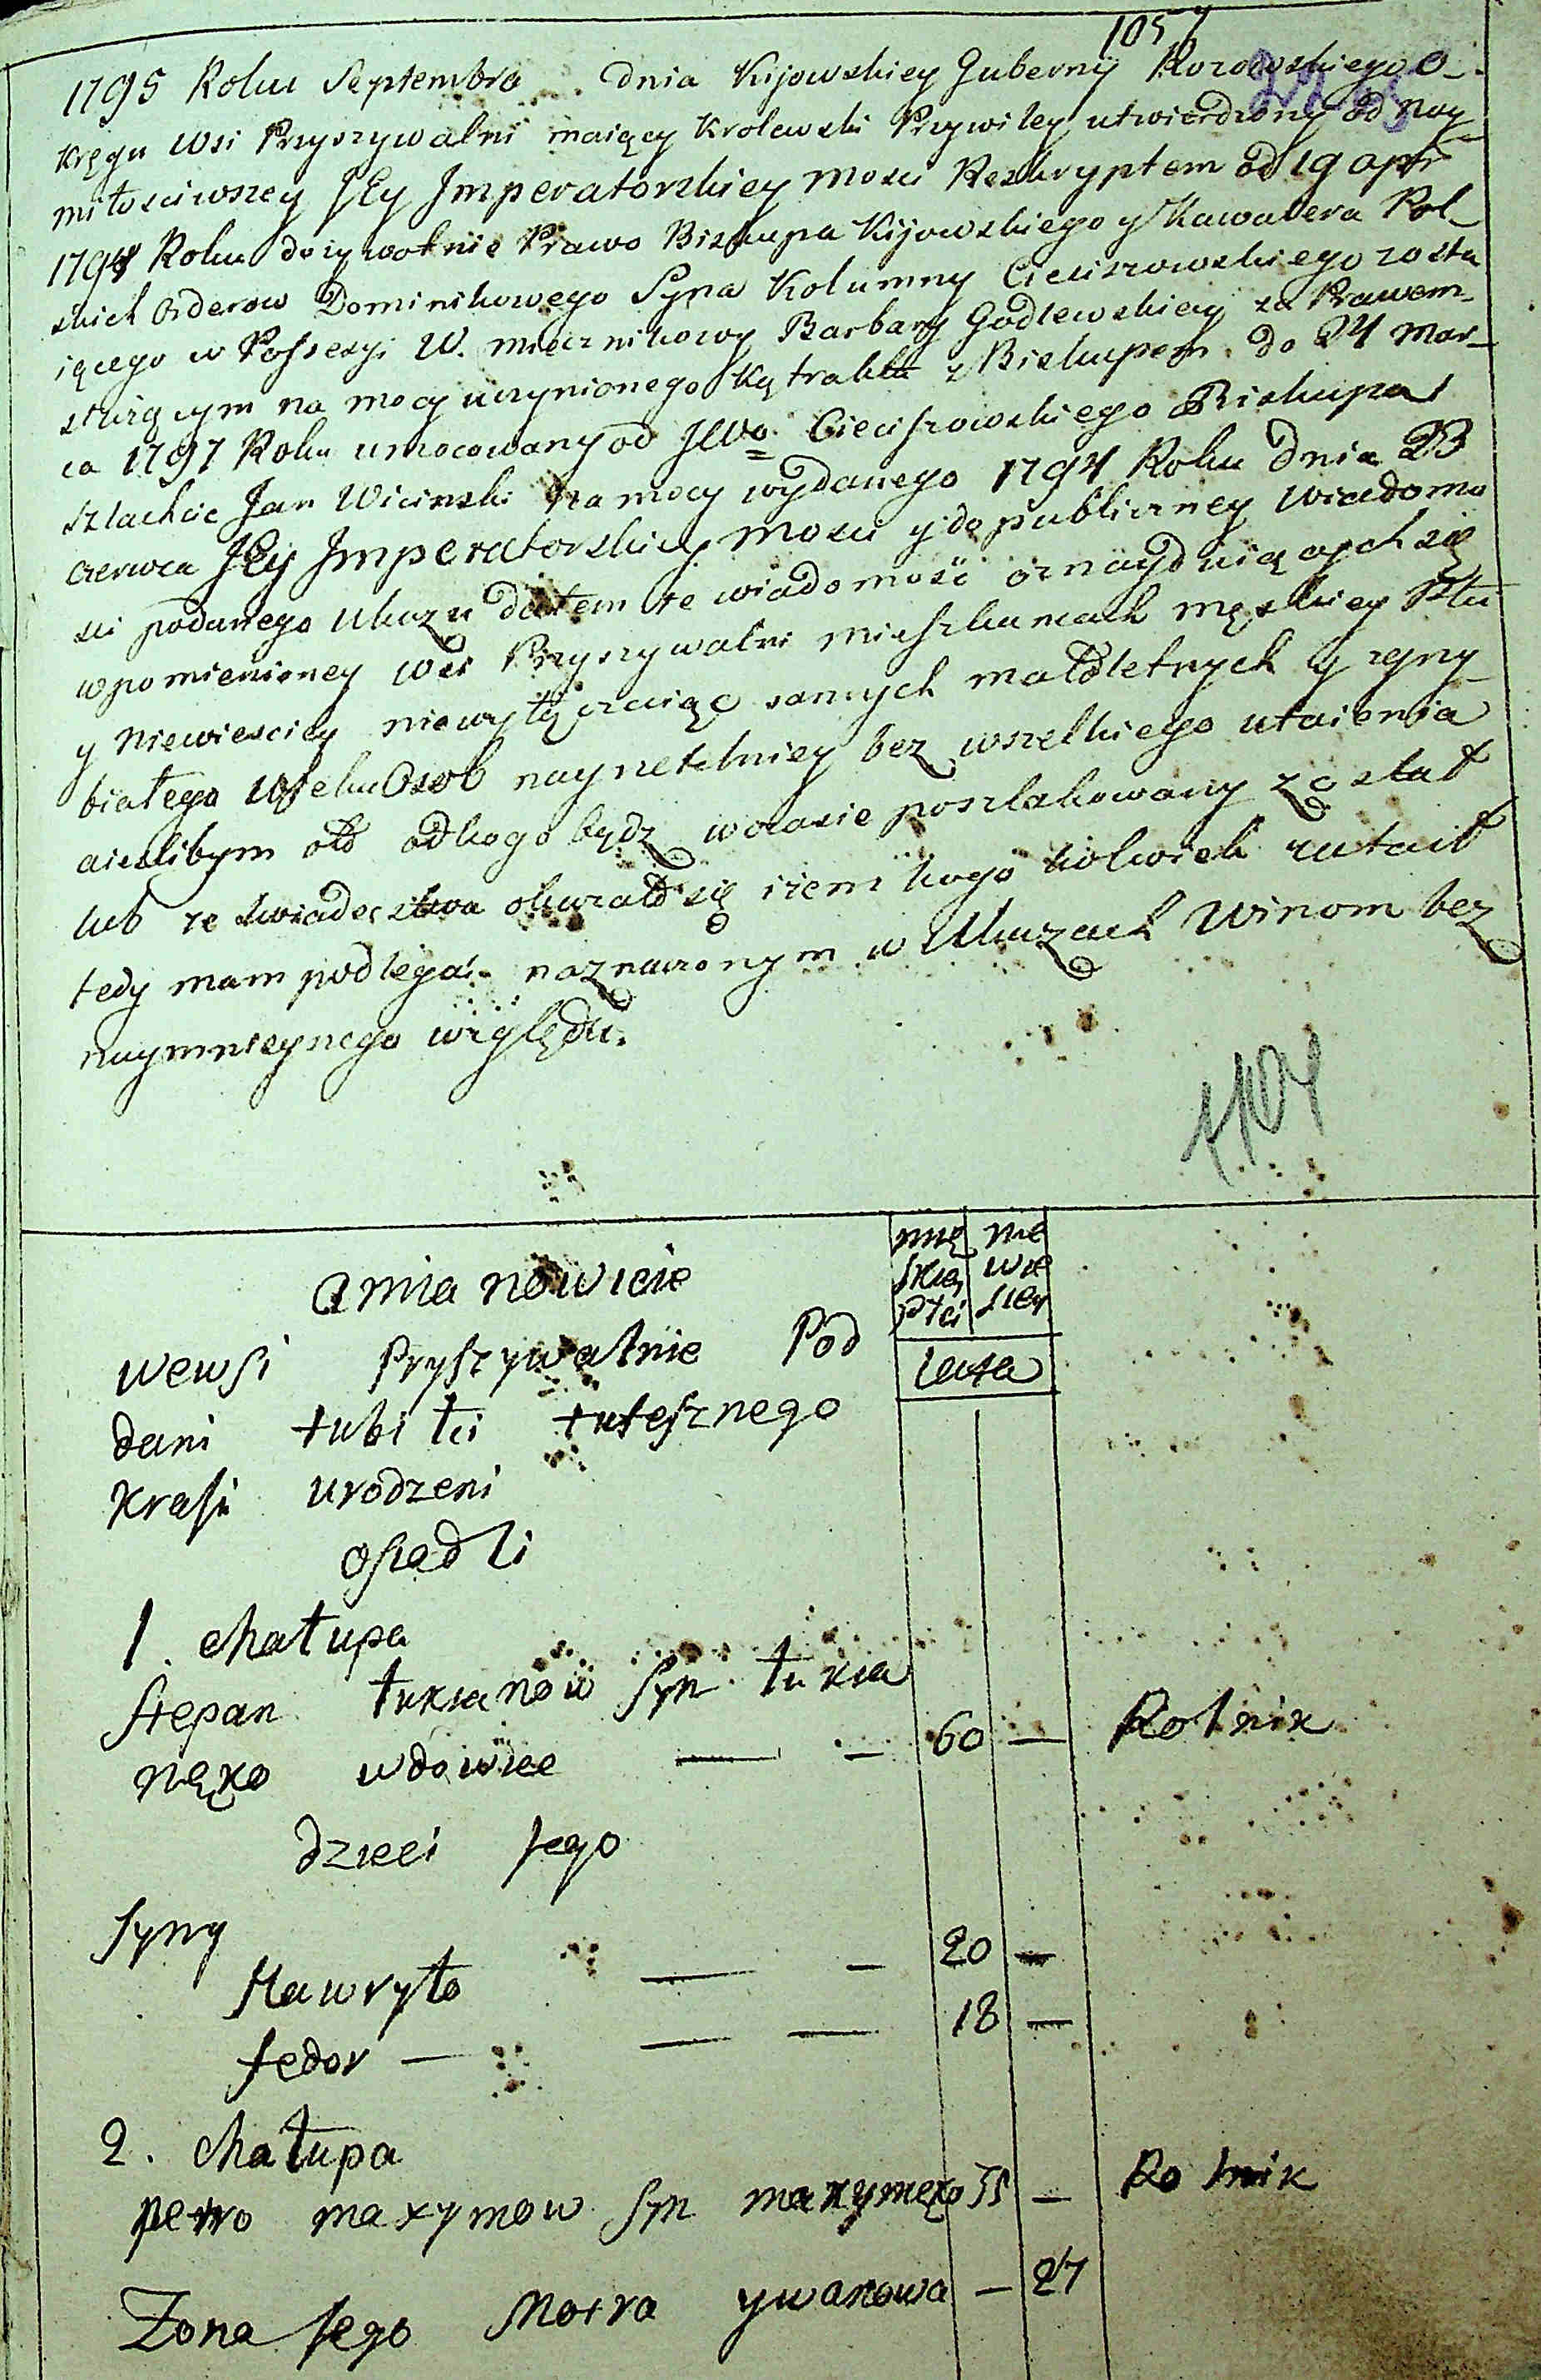 1057
1795 Roku Septembra dnia Kijowskiey Guberny O-
kręgu Wsi Pryszywalni maiący Krolewski Przywiley utwierdzony od Nay-
miłosciwszey JEy Imperatorskiey Mosci Reskryptem od 19 apr
1794 Roku dozywotnie Prawo Biskupa Kijowskiego y Kawalera Pol-
skich Orderow Dominikowego Syna Kolumny Cieciszowskiego zosta
iącego w Possesyi W. Miecznikowy Barbary Godlewskiey za Prawem
słuzącym na mocy uczynionego Kątraktu z Biskupem do 24 Mar-
ca 1797 Roku umocowany od JWo Cieciszowskiego Biskupa
szlachcic Jan Wicinski na mocy wydanego 1794 Roku dnia 23
czerwca JEy Imperatorskiey Mosci y do publiczney wiadomo
sci podanego Ukazu dałem te wiadomość o znayduiących się
wpomienioney wsi Pryszywalni Mieszkancach męskiey Płci
y Niewiesciey niewyłączaiąc samych małoletnych y zgrzy-
białego Wieku Osob nayrzetelniey bez wszelkiego utaienia
aiezlibym od kogo bądz wczasie poszlakowany został
lub ze swiadectwa okazało się izem kogo kolwiek zataił
tedy mam podlegać naznaczonym w Ukazach Winom bez
naymnieynego względu.
1104
amianowicie
mę nie
skię wie
płci sciey
wewsi Pryszywalnie Pod
Lata
dani tubilci tutesznego
kraiu urodzeni
osiadli
1. chałupa
Stepan Łukianow syn Łukia
nęko wdowiec — — 60 — Rolnik
dzieci jego
Syny
Hawryło — — 20 —
fedor — — — 18 —
2. chałupa
petro maxymow syn maxymęko 35 — Rolnik
Zona jego Motra ywanowa — 27